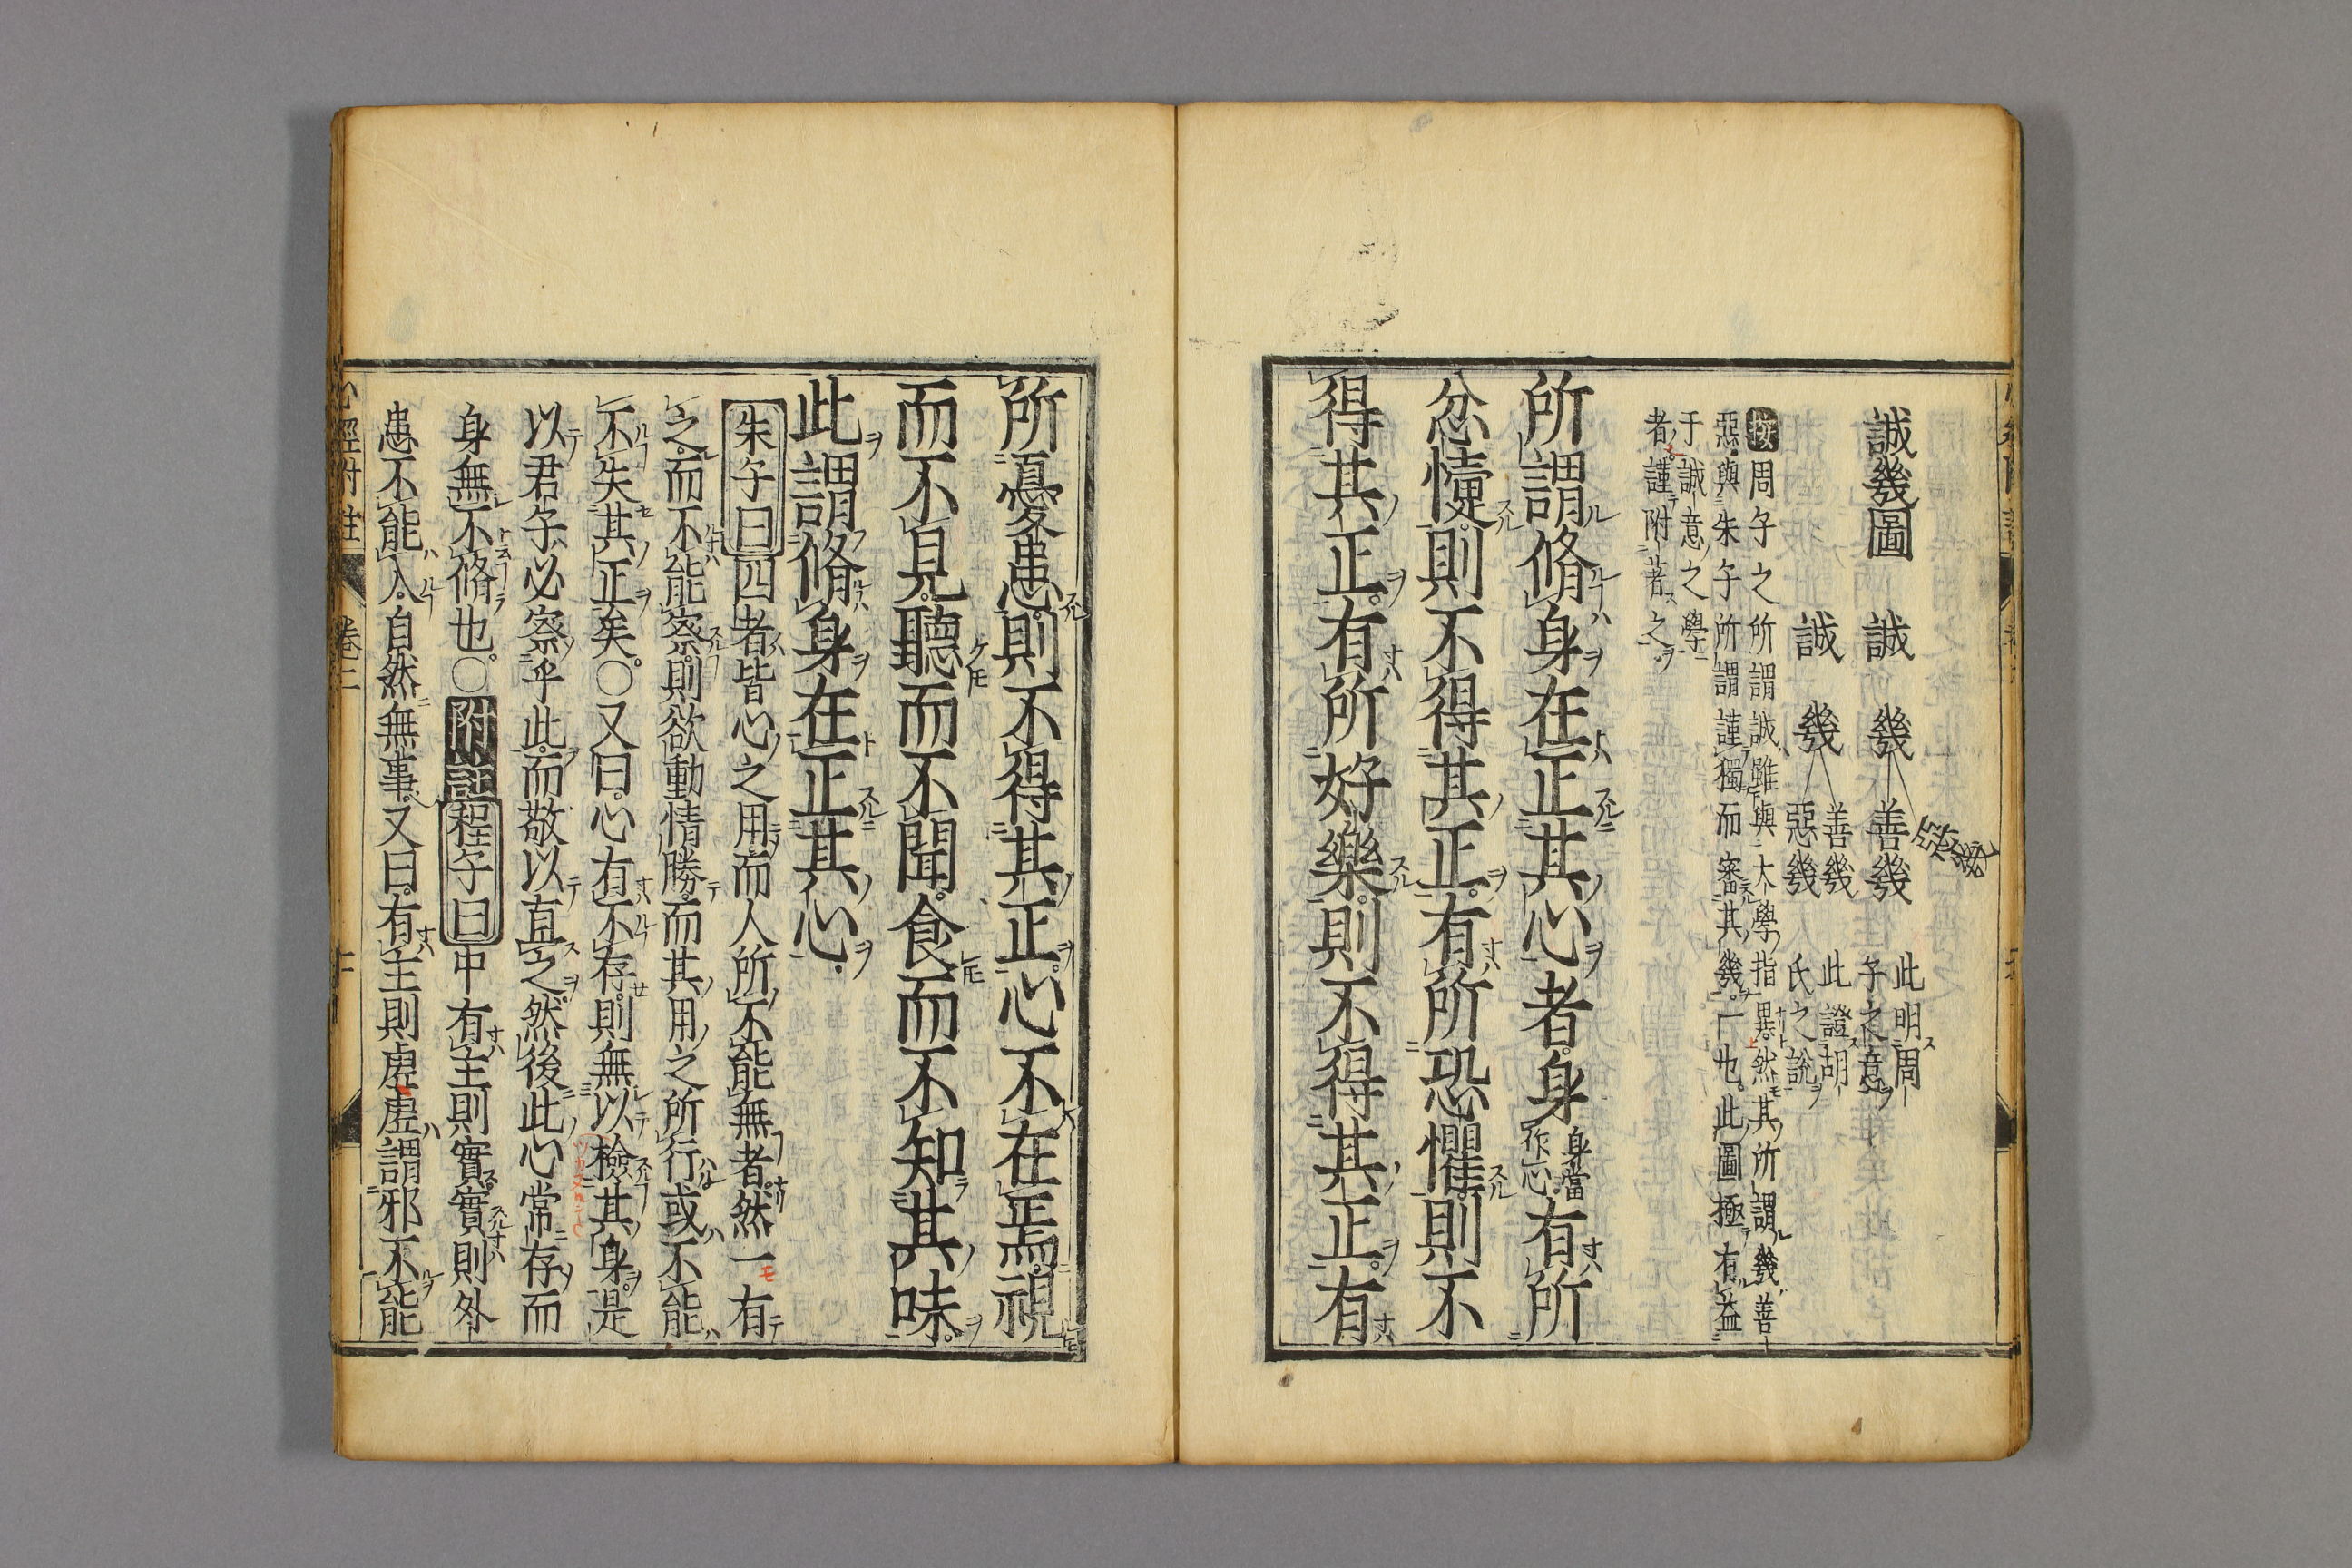 誠幾圖 誠 幾 善幾 惡幾 此明周子之意
誠 幾 善幾 惡幾 此證胡氏之說
按周子之所謂誠雖與大學指異然其所謂幾善
惡與朱子所謂謹獨而審其幾一也此圖極有益
于誠意之學
者謹附著之
所謂脩身在正其心者身身當作心有所
忿懥則不得其正有所恐懼則不
得其正有所好樂則不得其正有
所憂患則不得其正心不在焉視
而不見聽而不聞食而不知其味
此謂脩身在正其心
朱子曰四者皆心之用而人所不能無者然一有
之而不能察則欲動情勝而其用之所行或不能
不失其正矣〇又曰心有不存則無以檢其身是
以君子必察乎此而敬以直之然後此心常存而
身無不脩也〇附註程子曰中有主則實實則外
患不能入自然無事又曰有主則虛虛謂邪不能
心經附註 卷二 十一